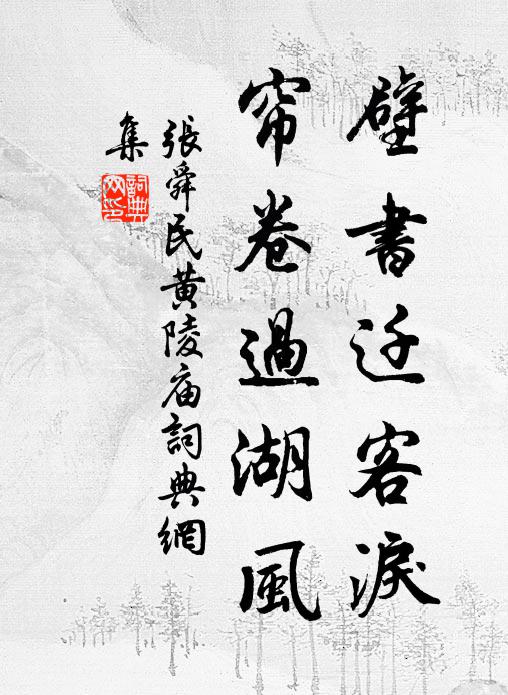 壁書迁客淚
帘卷過湖風
張舜民黄陵庙詞典網
集
詞典
网印